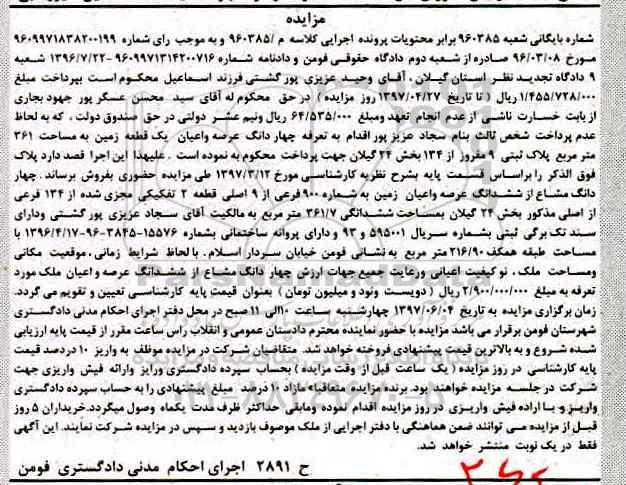 مزایده
شماره بایگانی شعبه ۹۶۰۳۸۵ برابر محتویات پرونده اجرایی کلاسه م /۹۶۰۳۸۵ و به موجب رای شماره ۹۶۰۹۹۷۱۸۳۸۲۰۰۱۹۹
مورخ ۹۶/۰۳/۰۸ صادره از شعبه دوم دادگاه حقوقی فومن و دادنامه شماره ۹۶۰۹۹۷۱۳۱۴۲۰۰۷۱۶ -۱۳۹۶/۷/۲۲ شعبه
۹ دادگاه تجدید نظر استان گیلان ، آقای وحید عزیزی پور گشتی فرزند اسماعیل محکوم است بپرداخت مبلغ
۱/۴۵۵/۷۲۸/۰۰۰ ریال ( تا تاریخ ۱۳۹۷/۰۴/۲۷ روز مزایده ) در حق محکوم له آقای سید محسن عسگر پور جهود بجاری
از بابت خسارت ناشی از عدم انجام تعهد ومبلغ ۶۴/۵۳۵/۰۰۰ ریال ونیم عشر دولتی در حق صندوق دولت ، که به لحاظ
عدم پرداخت شخص ثالث بنام سجاد عزیز پور اقدام به تعرفه چهار دانگ عرصه واعیان یک قطعه زمین به مساحت ۳۶۱
متر مربع پلاک ثبتی ۹ مفروز از ۱۳۴ بخش ۲۴ گیلان جهت پرداخت محکوم به نموده است . علیهذا این اجرا قصد دارد پلاک
فوق الذکر را براساس قسمت پایه بشرح نظریه کارشناسی مورخ ۱۳۹۷/۳/۱۲ طی مزایده حضوری بفروش برساند . چهار
دانگ مشاع از ششدانگ عرصه واعیان زمین به شماره ۹۰۰ فرعی از ۹ اصلی قطعه ۲ تفکیکی مجزی شده از ۱۳۴ فرعی
از اصلی مذکور بخش ۲۴ گیلان بمساحت ششدانگی ۳۶۱/۷ متر مربع به مالکیت آقای سجاد عزیزی پور گشتی ودارای
سند تک برگی ثبتی بشماره سریال ۵۹۵۰۰۱ و ۹۳ و دارای پروانه ساختمانی بشماره ۱۵۵۷۶-۳۸۴۵-۹۶-۱۳۹۶/۴/۱۷ با
مساحت طبقه همکف ۲۱۶/۹۰ متر مربع به نشانی فومن خیابان سردار اسلام . با لحاظ شرایط زمانی ، موقعیت مکانی
ومساحت ملک ، نو کیفیت اعیانی ورعایت جمیع جهات ارزش چهار دانگ مشاع از ششدانگ عرصه و اعیان ملک مورد
تعرفه به مبلغ ۲/۹۰۰/۰۰۰/۰۰۰ ریال ( دویست ونود و میلیون تومان ) بعنوان قیمت پایه کارشناسی تعیین و تقویم می گردد.
زمان برگزاری مزایده به تاریخ ۱۳۹۷/۰۶/۰۴ چهارشنبه ساعت ۱۰الی ۱۱ صبح در محل دفتر اجرای احکام مدنی دادگستری
شهرستان فومن برقرار می باشد مزایده با حضور نماینده محترم دادستان عمومی و انقلاب راس ساعت مقرر از قیمت پایه ارزیابی
شده شروع و به بالاترین قیمت پیشنهادی فروخته خواهد شد. متقاضیان شرکت در مزایده موظف به واریز ۱۰ درصد قیمت
پایه کارشناسی در روز مزایده ( یک ساعت قبل از وقت مزایده ) بحساب سپرده دادگستری ورایز وارائه فیش واریزی جهت
شرکت در جلسه مزایده خواهند بود. برنده مزایده متعاقبا مازاد ۱۰ درصد مبلغ پیشنهادی را به حساب سپرده دادگستری
واریز و با اراده فیش واریزی در روز مزایده اقدام نموده ومابقی حداکثر ظرف مدت یکماه وصول میگردد.خریداران ۵ روز
قبل از مزایده می توانند ضمن هماهنگی با دفتر اجرایی از ملک موصوف بازدید و سپس در مزایده شرکت نمایند. این آگهی
فقط در یک نوبت منتشر خواهد شد.
ح ۲۸۹۱ اجرای احکام مدنی دادگستری فومن